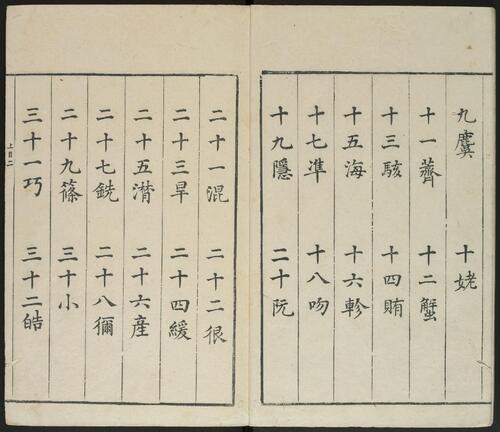 九麌　十姥
十一薺　十二蟹
十三駭　十四賄
十五海　十六軫
十七準　十八吻
十九隱　二十阮
二十一混　二十二很
二十三旱　二十四緩
二十五潸　二十六產
二十七銑　二十八獮
二十九篠　三十小
三十一巧　三十二皓
上目二